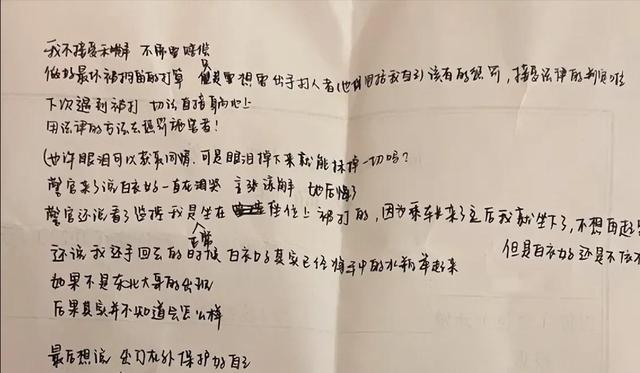 我不接受和解 不需要赔偿
做好最坏被拘留的打算 但是更想要出手打人者(也包括我自己)该有的惩罚,接受法律的判责
下次遇到被打 切记直接躺地上
用法律的方法去惩罚施害者!
(也许眼泪可以获取同情,可是眼泪掉下来就能抹掉一切吗?
警官来了说白衣女一直在调监 主张谅解 她后悔了
警官还说看了监控我是坐在座位上被打的,因为乘车业来了之后我就坐下了,不想再起
正常
但是白衣女还是不依不
还说我还手回去的时候 白衣女其实已经将手中的水瓶举起来
如果不是东北大哥的出现
后果其实并不知道会怎么样
最后想说 出门在外保护好自己